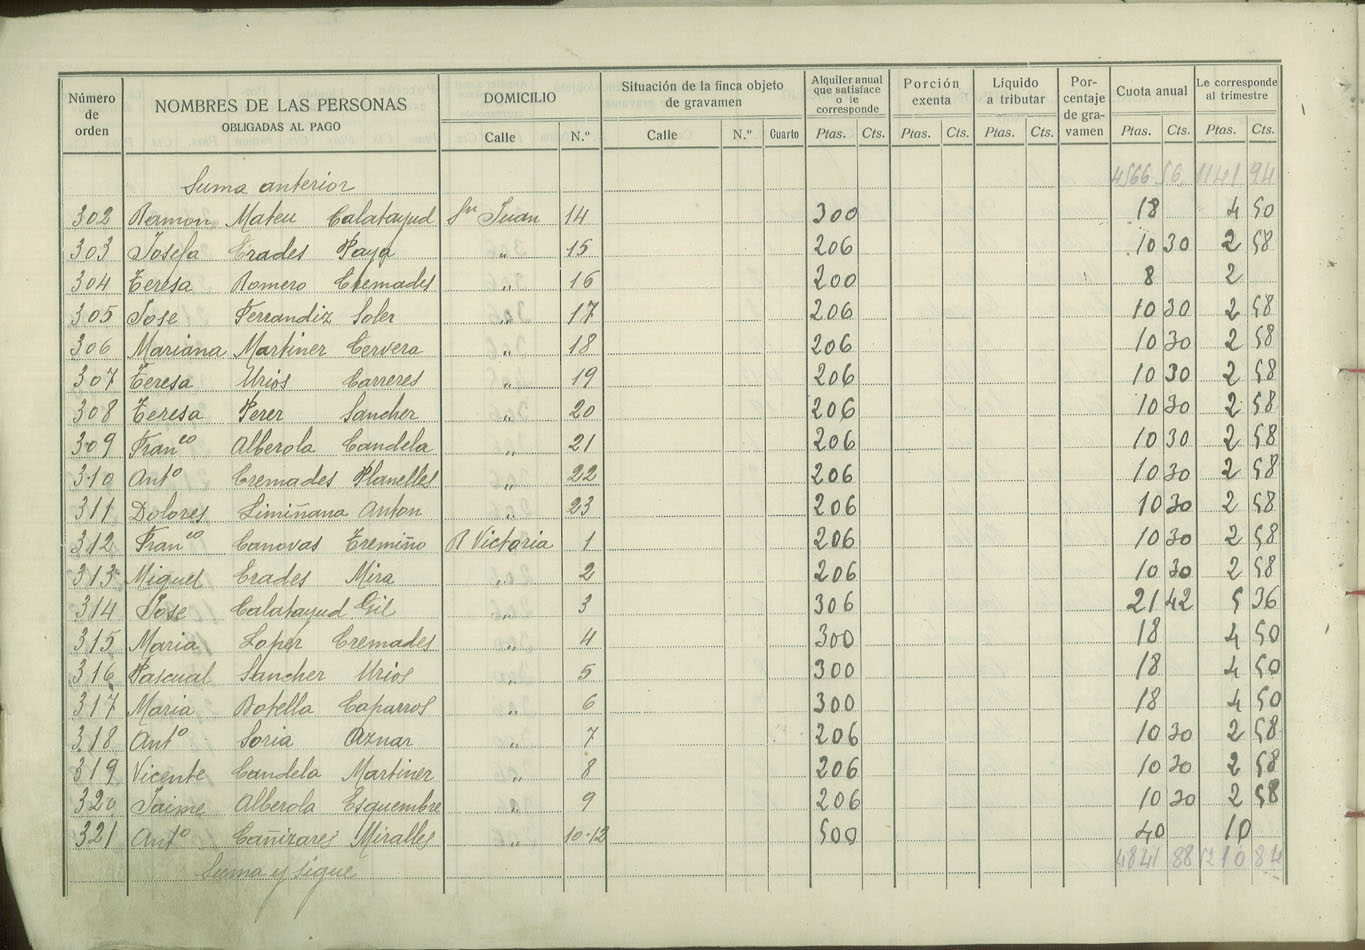 Número de orden NOMBRES DE LAS PERSONAS OBLIGADAS AL PAGO DOMICILIO Situación de la finca objeto de gravamen Alquiler anual que satisface o le corresponde Porción exenta Líquido a tributar Porcentaje de gravamen Cuota anual Le corresponde al trimestre
Calle N.º Calle N.º Cuarto Ptas. Cts. Ptas. Cts. Ptas. Cts. Ptas. Cts. Ptas. Cts.
Suma anterior 4566 56 1141 94
302 Ramon Mateu Calatayud Sn Juan 14 300 18 4 50
303 Josefa Erades Paya " 15 206 10 30 2 58
304 Teresa Romero Cremades " 16 200 8 2
305 Jose Ferrandiz Soler " 17 206 10 30 2 58
306 Mariana Martinez Cervera " 18 206 10 30 2 58
307 Teresa Urios Carreres " 19 206 10 30 2 58
308 Teresa Perez Sanchez " 20 206 10 30 2 58
309 Franco Alberola Candela " 21 206 10 30 2 58
310 Anto Cremades Planelles " 22 206 10 30 2 58
311 Dolores Limiñana Anton " 23 206 10 30 2 58
312 Franco Canovas Tremiño R Victoria 1 206 10 30 2 58
313 Miguel Erades Mira " 2 206 10 30 2 58
314 Jose Calatayud Gil " 3 306 21 42 5 36
315 Maria Lopez Cremades " 4 300 18 4 50
316 Pascual Sanchez Urios " 5 300 18 4 50
317 Maria Botella Caparros " 6 300 18 4 50
318 Anto Soria Aznar " 7 206 10 30 2 58
319 Vicente Candela Martinez " 8 206 10 30 2 58
320 Jaime Alberola Esquembre " 9 206 10 30 2 58
321 Anto Cañizares Miralles " 10-12 500 40 10
Suma y sigue 4841 88 1210 84